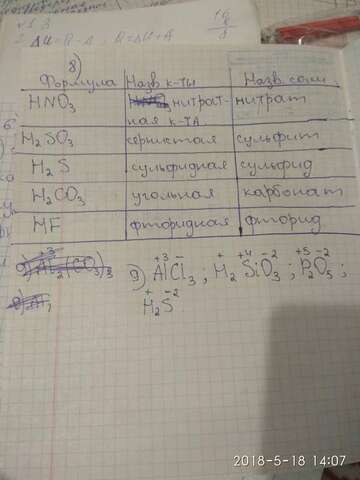 8)
Формула Назв. к-ты Назв. соли
HNO3 нитрат- нитрат
ная к-та
H2SO3 сернистая сульфит
H2S сульфидная сульфид
H2CO3 угольная карбонат
HF фторидная фторид
9) +3 - AlCl3 ; + +4 -2 H2SiO3 ; +5 -2 P2O5 ;
+ -2 H2S
2018-5-18 14:07